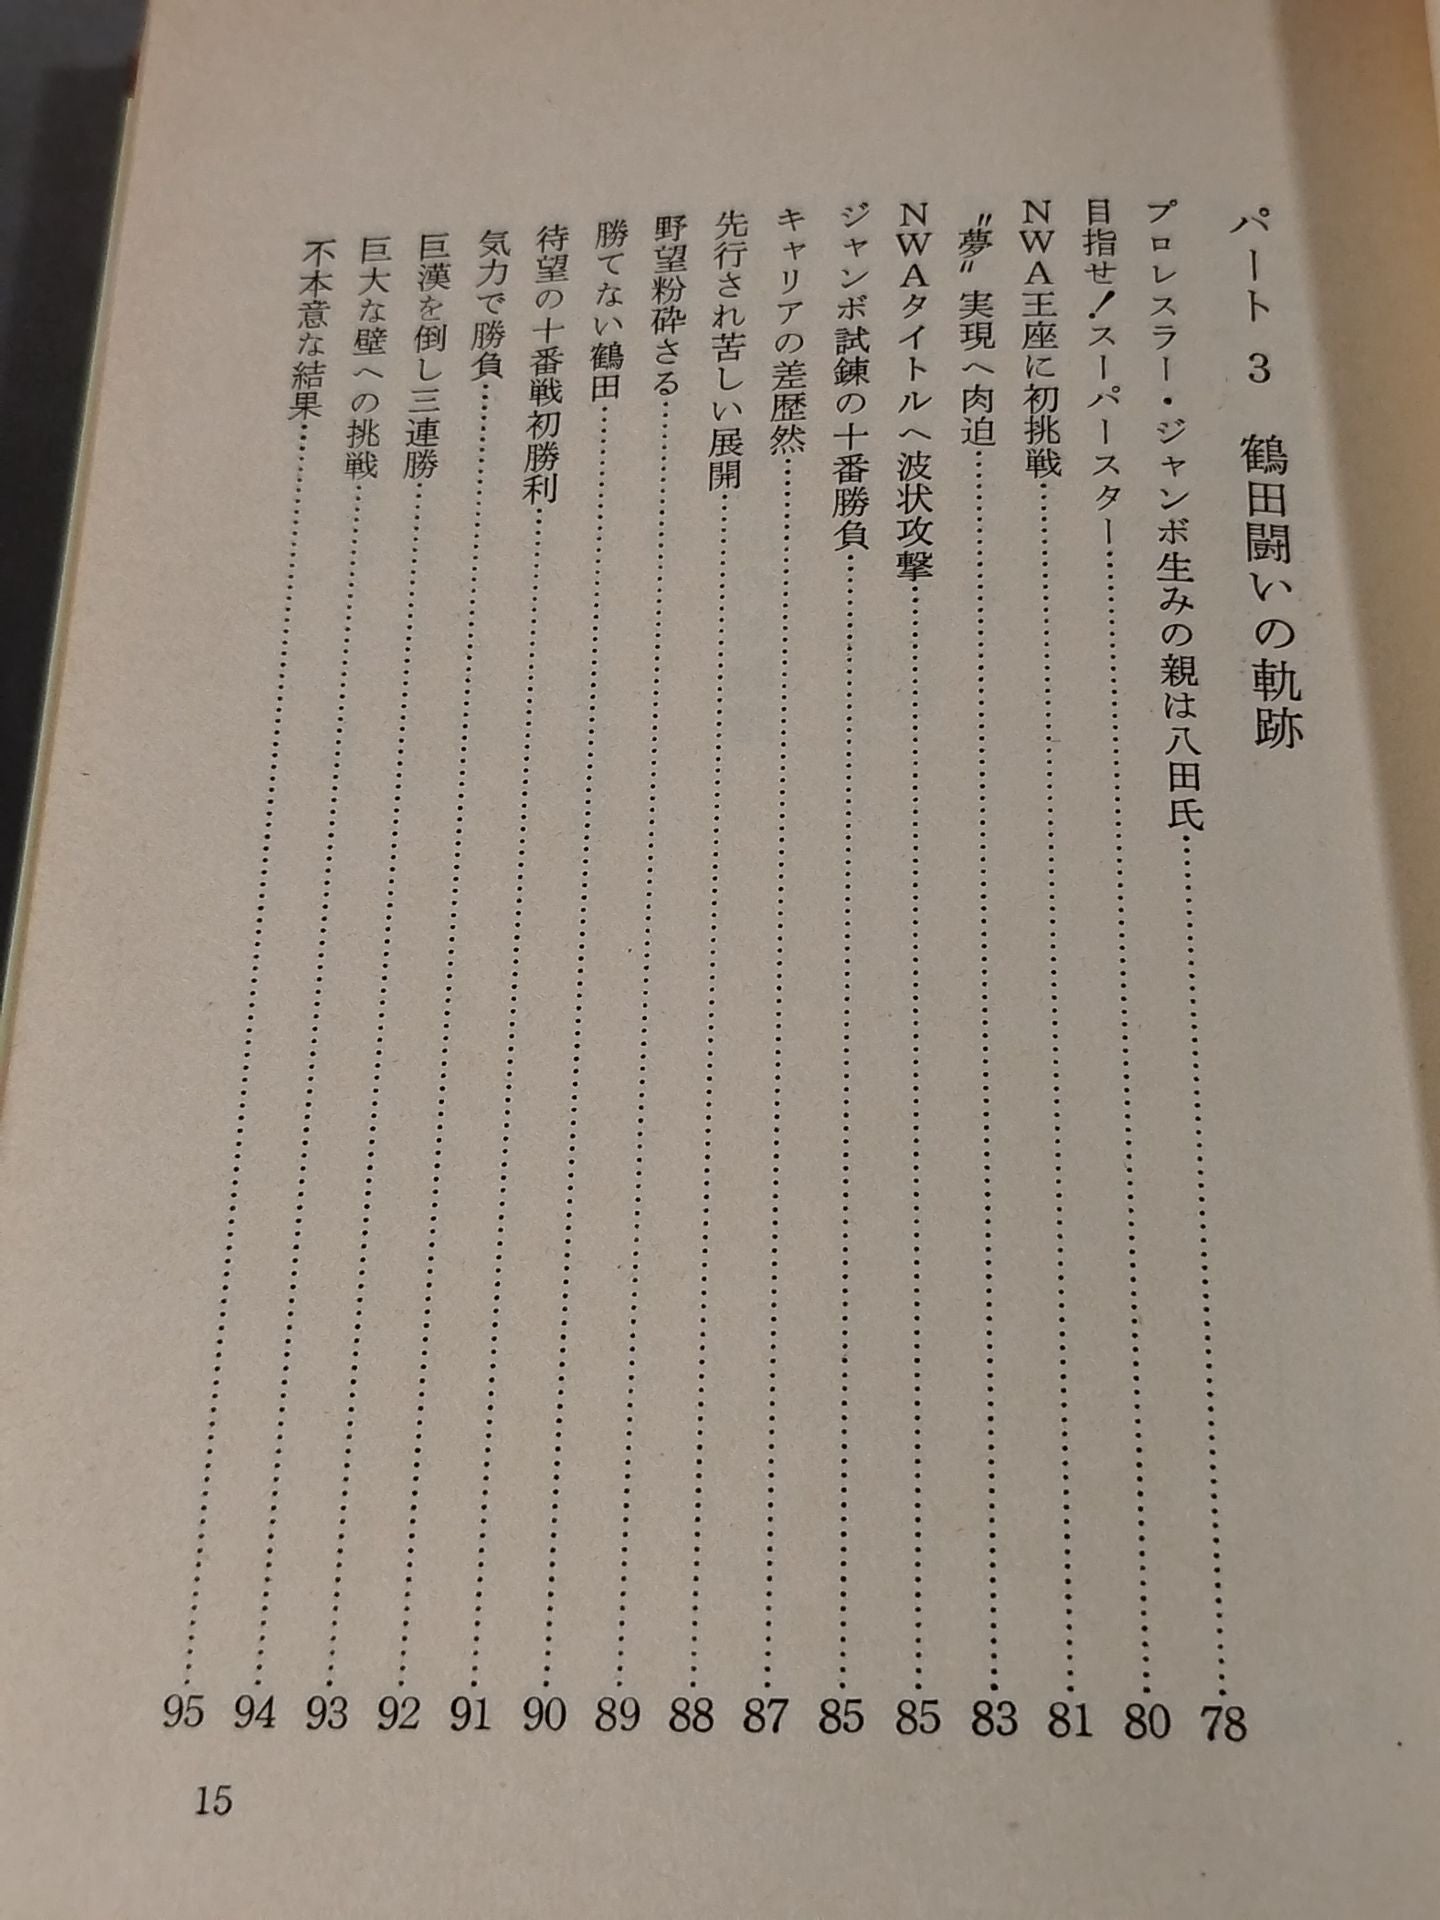 パート3　鶴田闘いの軌跡
プロレスラー・ジャンボ生みの親は八田氏……78
目指せ！スーパースター……80
NWA王座に初挑戦……81
〝夢〟実現へ肉迫……83
NWAタイトルへ波状攻撃……85
ジャンボ試錬の十番勝負……85
キャリアの差歴然……87
先行され苦しい展開……88
野望粉砕さる……89
勝てない鶴田……90
待望の十番戦初勝利……91
気力で勝負……92
巨漢を倒し三連勝……93
巨大な壁への挑戦……94
不本意な結果……95
15